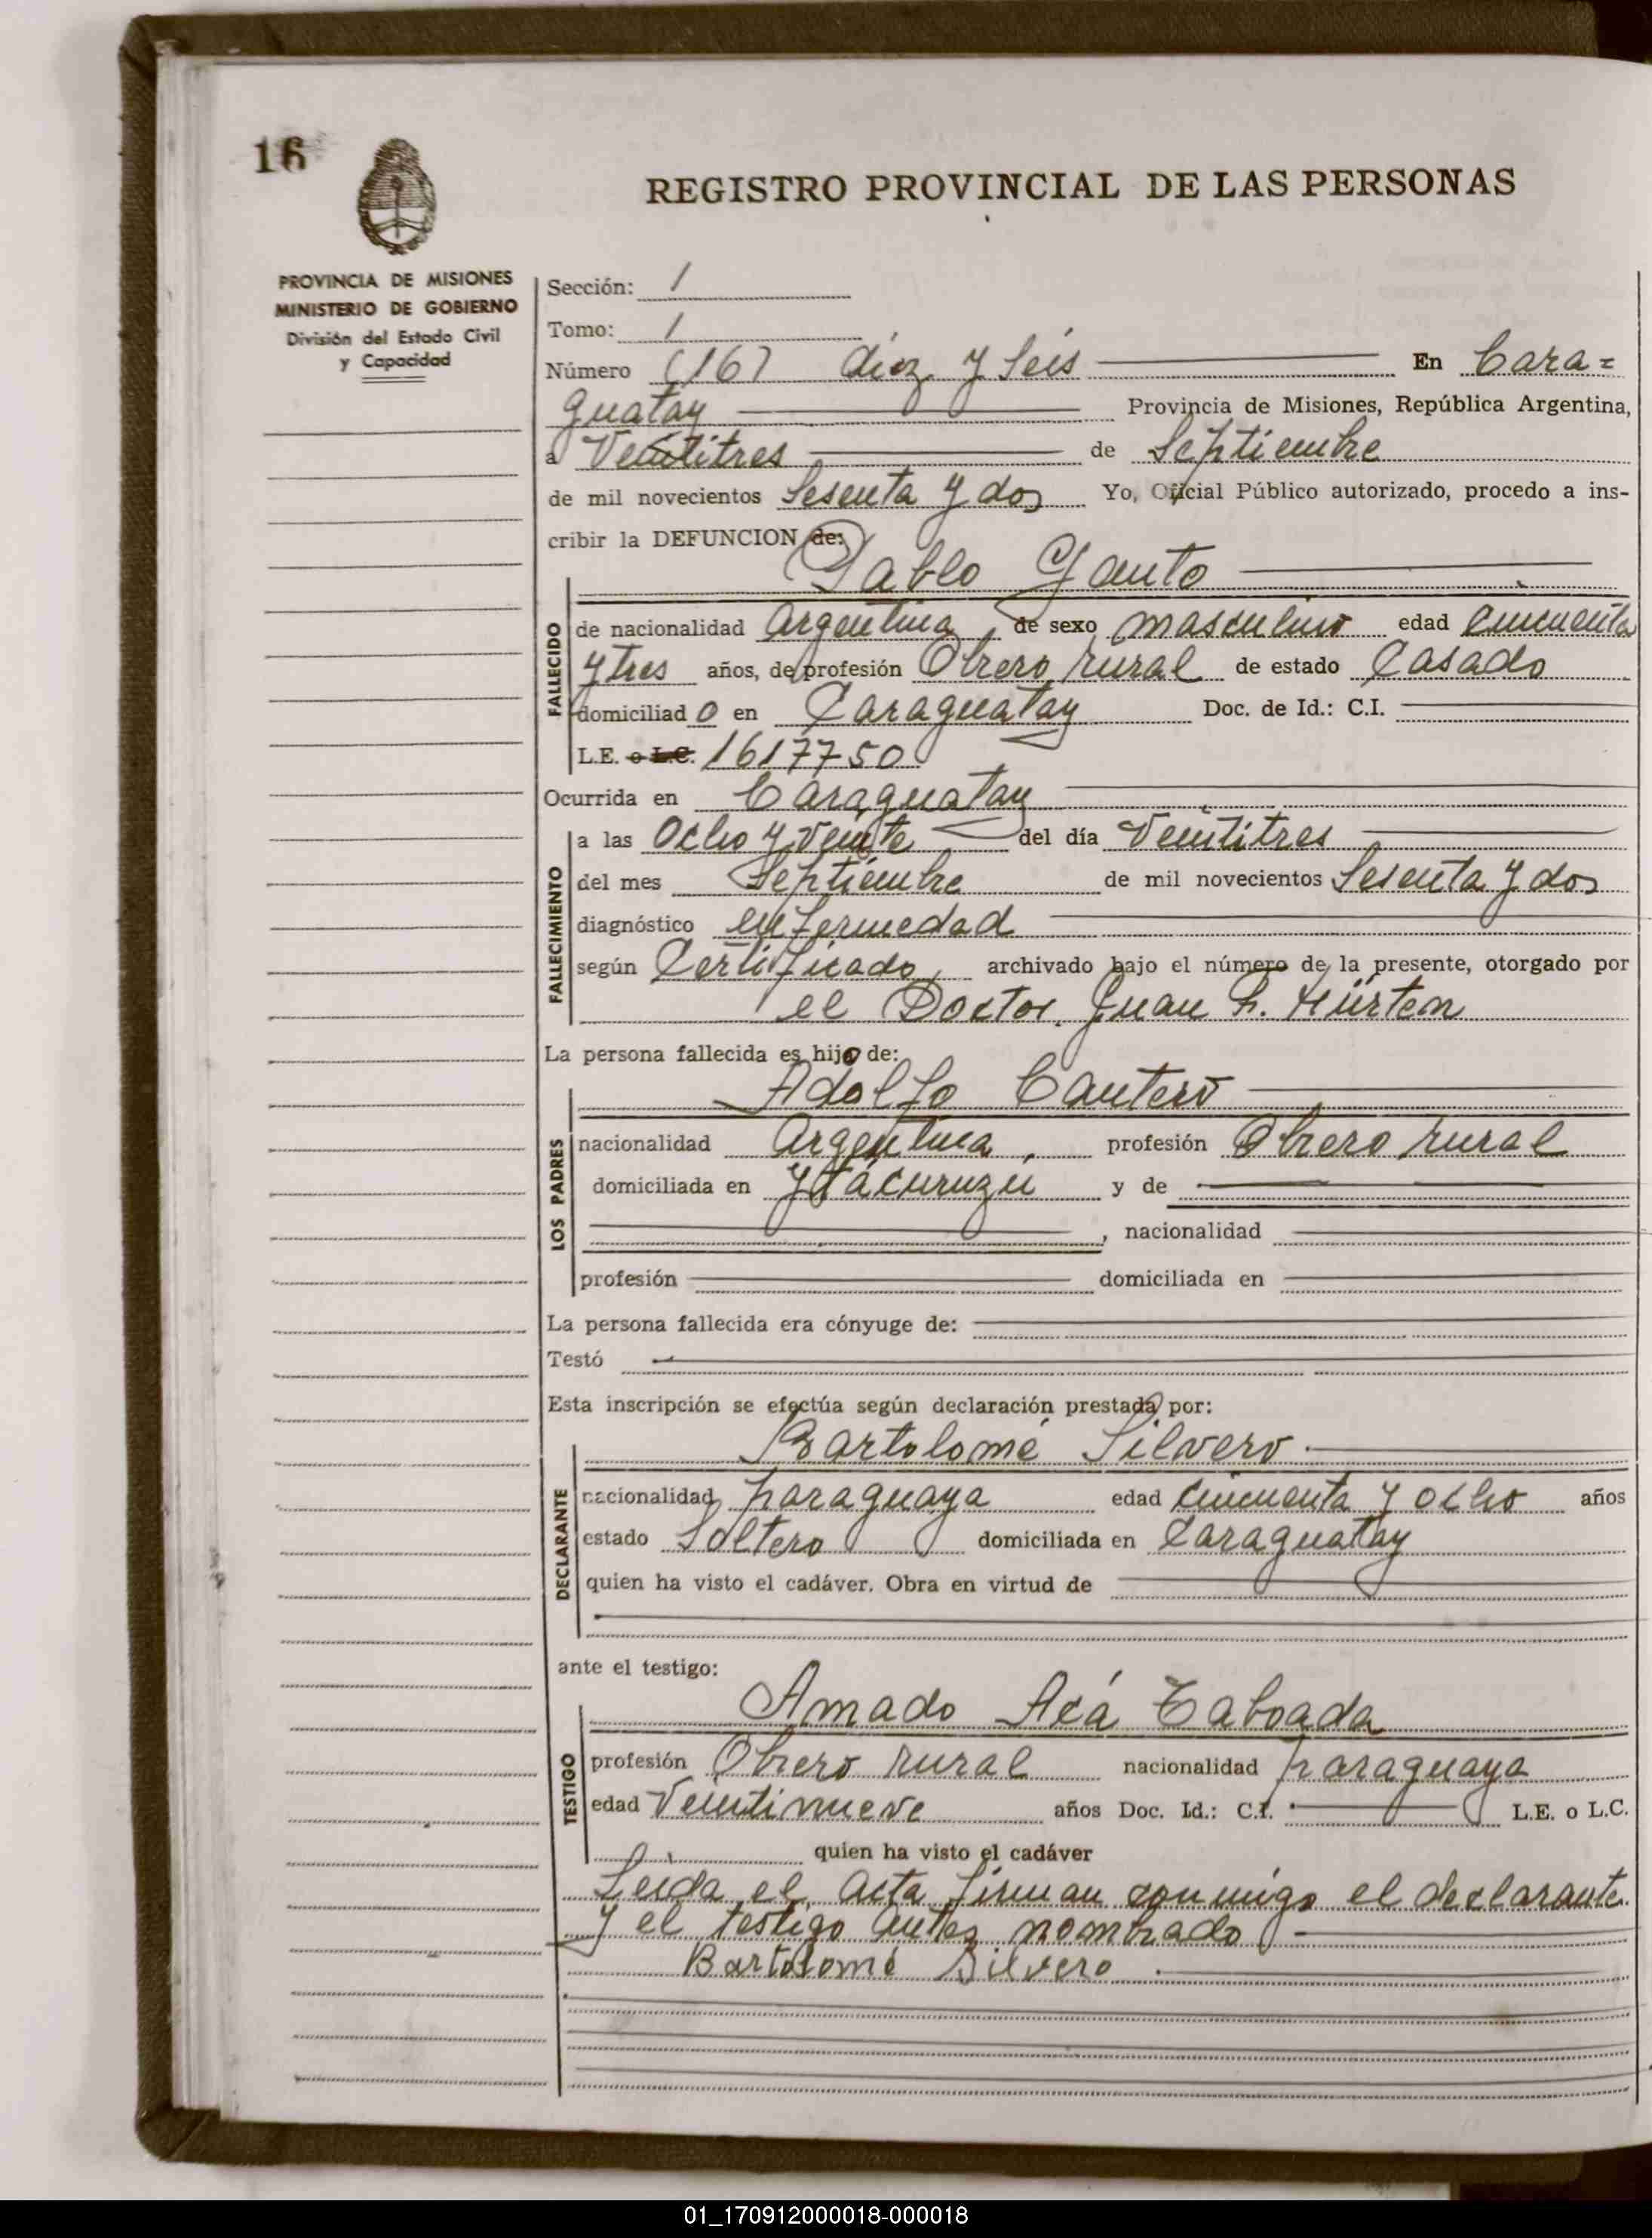 16
REGISTRO PROVINCIAL DE LAS PERSONAS
PROVINCIA DE MISIONES
MINISTERIO DE GOBIERNO
División del Estado Civil
y Capacidad
Sección: 1
Tomo: 1
Número (16) diez y Seis En Cara=
guatay Provincia de Misiones, República Argentina,
a Veintitres de Septiembre
de mil novecientos Sesenta y dos Yo, Oficial Público autorizado, procedo a ins-
cribir la DEFUNCION de:
Pablo Gauto
FALLECIDO
de nacionalidad Argentina, de sexo masculino edad Cincuenta
y tres años, de profesión Obrero rural de estado Casado
domiciliado en Caraguatay Doc. de Id.: C.I.
L.E. o L.C. 1617750
Ocurrida en Caraguatay
FALLECIMIENTO
a las Ocho y Veinte del día Veintitres
del mes Septiembre de mil novecientos Sesenta y dos
diagnóstico enfermedad
según Certificado, archivado bajo el número de la presente, otorgado por
el Doctor Juan h. Hürten
La persona fallecida es hijo de:
Adolfo Cantero
LOS PADRES
nacionalidad Argentina, profesión Obrero rural
domiciliada en Ytácuruzú y de
, nacionalidad
profesión domiciliada en
La persona fallecida era cónyuge de:
Testó
Esta inscripción se efectúa según declaración prestada por:
Bartolomé Silvero
DECLARANTE
nacionalidad paraguaya edad Cincuenta y ocho años
estado Soltero domiciliada en Caraguatay
quien ha visto el cadáver. Obra en virtud de
ante el testigo:
Amado Acá Taboada
TESTIGO
profesión Obrero rural nacionalidad paraguaya
edad Veintinueve años Doc. Id.: C.I. L.E. o L.C.
quien ha visto el cadáver
Leida el acta firman conmigo el declarante
y el testigo antes nombrado
Bartolomé Silvero
01_170912000018-000018